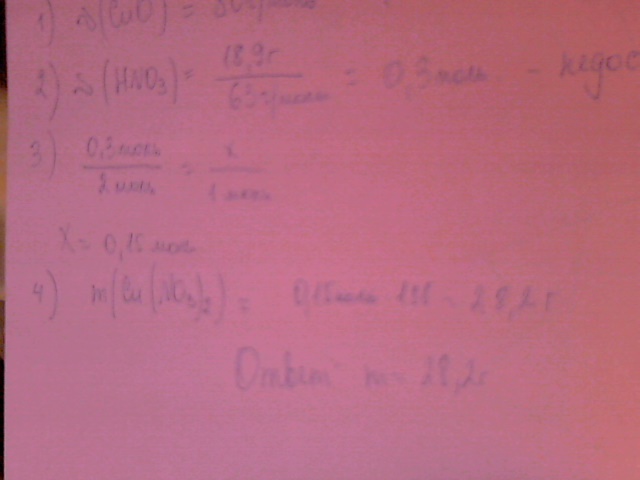 1) ν(CuO) = 80 г/моль
2) ν(HNO₃) = 18,9г / 63г/моль = 0,3 моль - недос
3) 0,3 моль / 2 моль = x / 1 моль
X = 0,15 моль
4) m(Cu(NO₃)₂) = 0,15моль 188 = 28,2 г
Ответ m = 28,2г